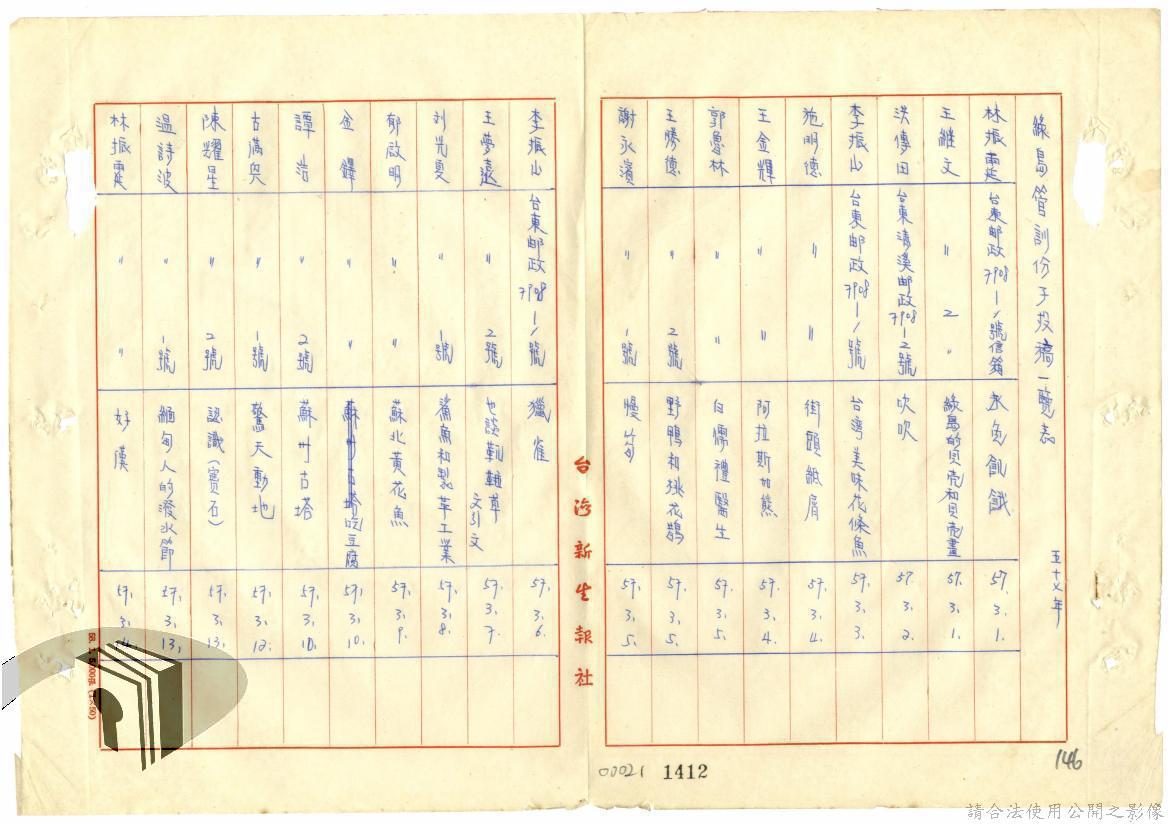 綠島管訓份子投稿一覽表
五十七年
林振霆 台東郵政7908-1/號信箱 衣魚飢餓 57. 3. 1.
王繼文 〃 2 〃 綠島的貝壳和貝壳畫 57. 3. 1.
洪傳田 台東清溪郵政7908-2號 吹吹 57. 3. 2.
李振山 台東郵政7908-1/號 台灣美味花條魚 57. 3. 3.
施明德 〃 〃 街頭紙屑 57. 3. 4.
王金輝 〃 〃 阿拉斯加熊 57. 3. 4.
郭魯林 〃 〃 白儒禮醫生 57. 3. 5.
王勝德 〃 2號 野鴨和桃花鵲 57. 3. 5.
謝永濱 〃 1號 慢苟 57. 3. 5.
台灣新生報社
李振山 台東郵政7908-1/號 獵雀 57. 3. 6.
王夢遠 〃 2號 也談靰鞡草 文引文 57. 3. 7.
刘光夏 〃 1號 鯊魚和製革工業 57. 3. 8.
郁啟明 〃 〃 蘇北黃花魚 57. 3. 9.
金鐸 〃 吃豆腐 57. 3. 10.
譚浩 〃 2號 蘇州古塔 57. 3. 10.
古滿興 〃 1號 驚天動地 57. 3. 12.
陳耀星 〃 2號 認識(寶石) 57. 3. 13.
溫詩波 〃 1號 緬甸人的潑水節 57. 3. 13.
林振霆 〃 〃 好漢 57. 3.
00021 1412
146
請合法使用公開之影像